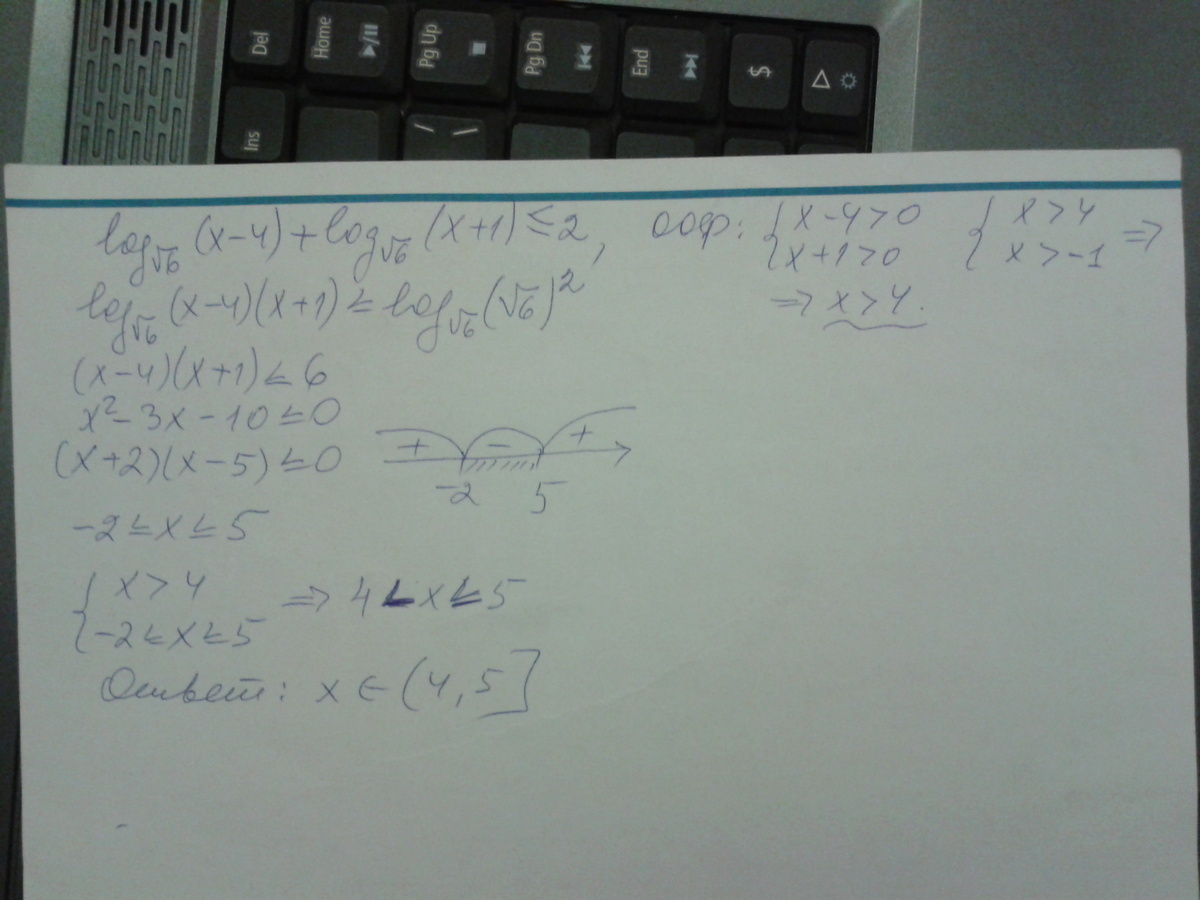 Del
Home
Pg Up
Pg Dn
End
$
Ins
log√6 (x-4) + log√6 (x+1) ≤ 2, ООФ: { x-4>0 { x>4 ⇒
x+1>0 x>-1
log√6 (x-4)(x+1) ≤ log√6 (√6)² ⇒ x>4.
(x-4)(x+1) ≤ 6
x²-3x-10 ≤ 0
(x+2)(x-5) ≤ 0 + - +
-2 5
-2 ≤ x ≤ 5
{ x>4 ⇒ 4 < x ≤ 5
-2 ≤ x ≤ 5
Ответ: x ∈ (4, 5]